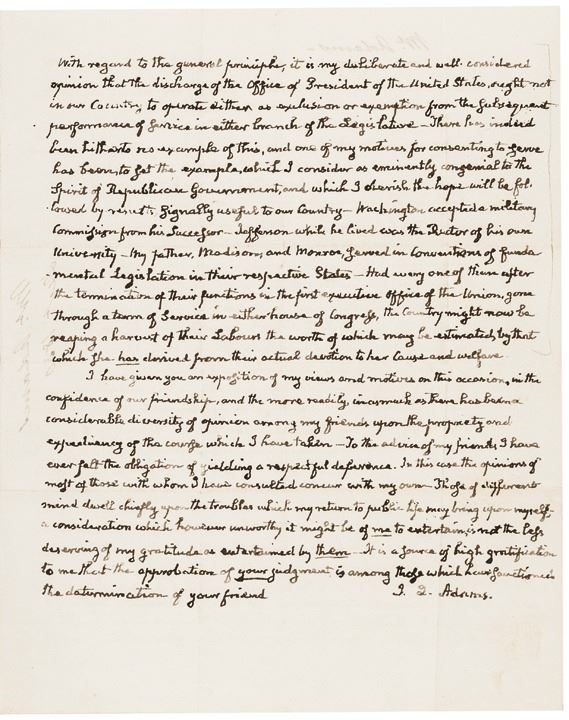 With regard to the general principle, it is my deliberate and well considered
opinion that the discharge of the Office of President of the United States, ought not
in our Country to operate either as exclusion or exemption from the subsequent
performance of Service in either branch of the Legislature — There has indeed
been hitherto no example of this, and one of my motives for consenting to serve
has been, to set the example, which I consider as eminently congenial to the
Spirit of Republican Government, and which I cherish the hope will be fol-
lowed by results signally useful to our Country — Washington accepted a military
Commission from his Successor — Jefferson while he lived was the Rector of his own
University — My father, Madison, and Monroe, served in Conventions of funda-
mental Legislation in their respective States — Had every one of them after
the termination of their functions in the first executive Office of the Union, gone
through a term of Service in either house of Congress, the Country might now be
reaping a harvest of their Labours the worth of which may be estimated by that
which she has derived from their actual devotion to her Cause and welfare.
I have given you an exposition of my views and motives on this occasion, in the
confidence of our friendship, and the more readily, inasmuch as there has been a
considerable diversity of opinion among my friends upon the propriety and
expediency of the course which I have taken — To the advice of my friends I have
ever felt the obligation of yielding a respectful deference. In this case the opinions of
most of those with whom I have consulted concur with my own — Those of different
mind dwell chiefly upon the troubles which my return to public life may bring upon myself —
a consideration which however unworthy it might be of me to entertain, is not the less
deserving of my gratitude as entertained by them — It is a source of high gratification
to me that the approbation of your judgment is among those which have sanctioned
the determination of your friend J. Q. Adams.